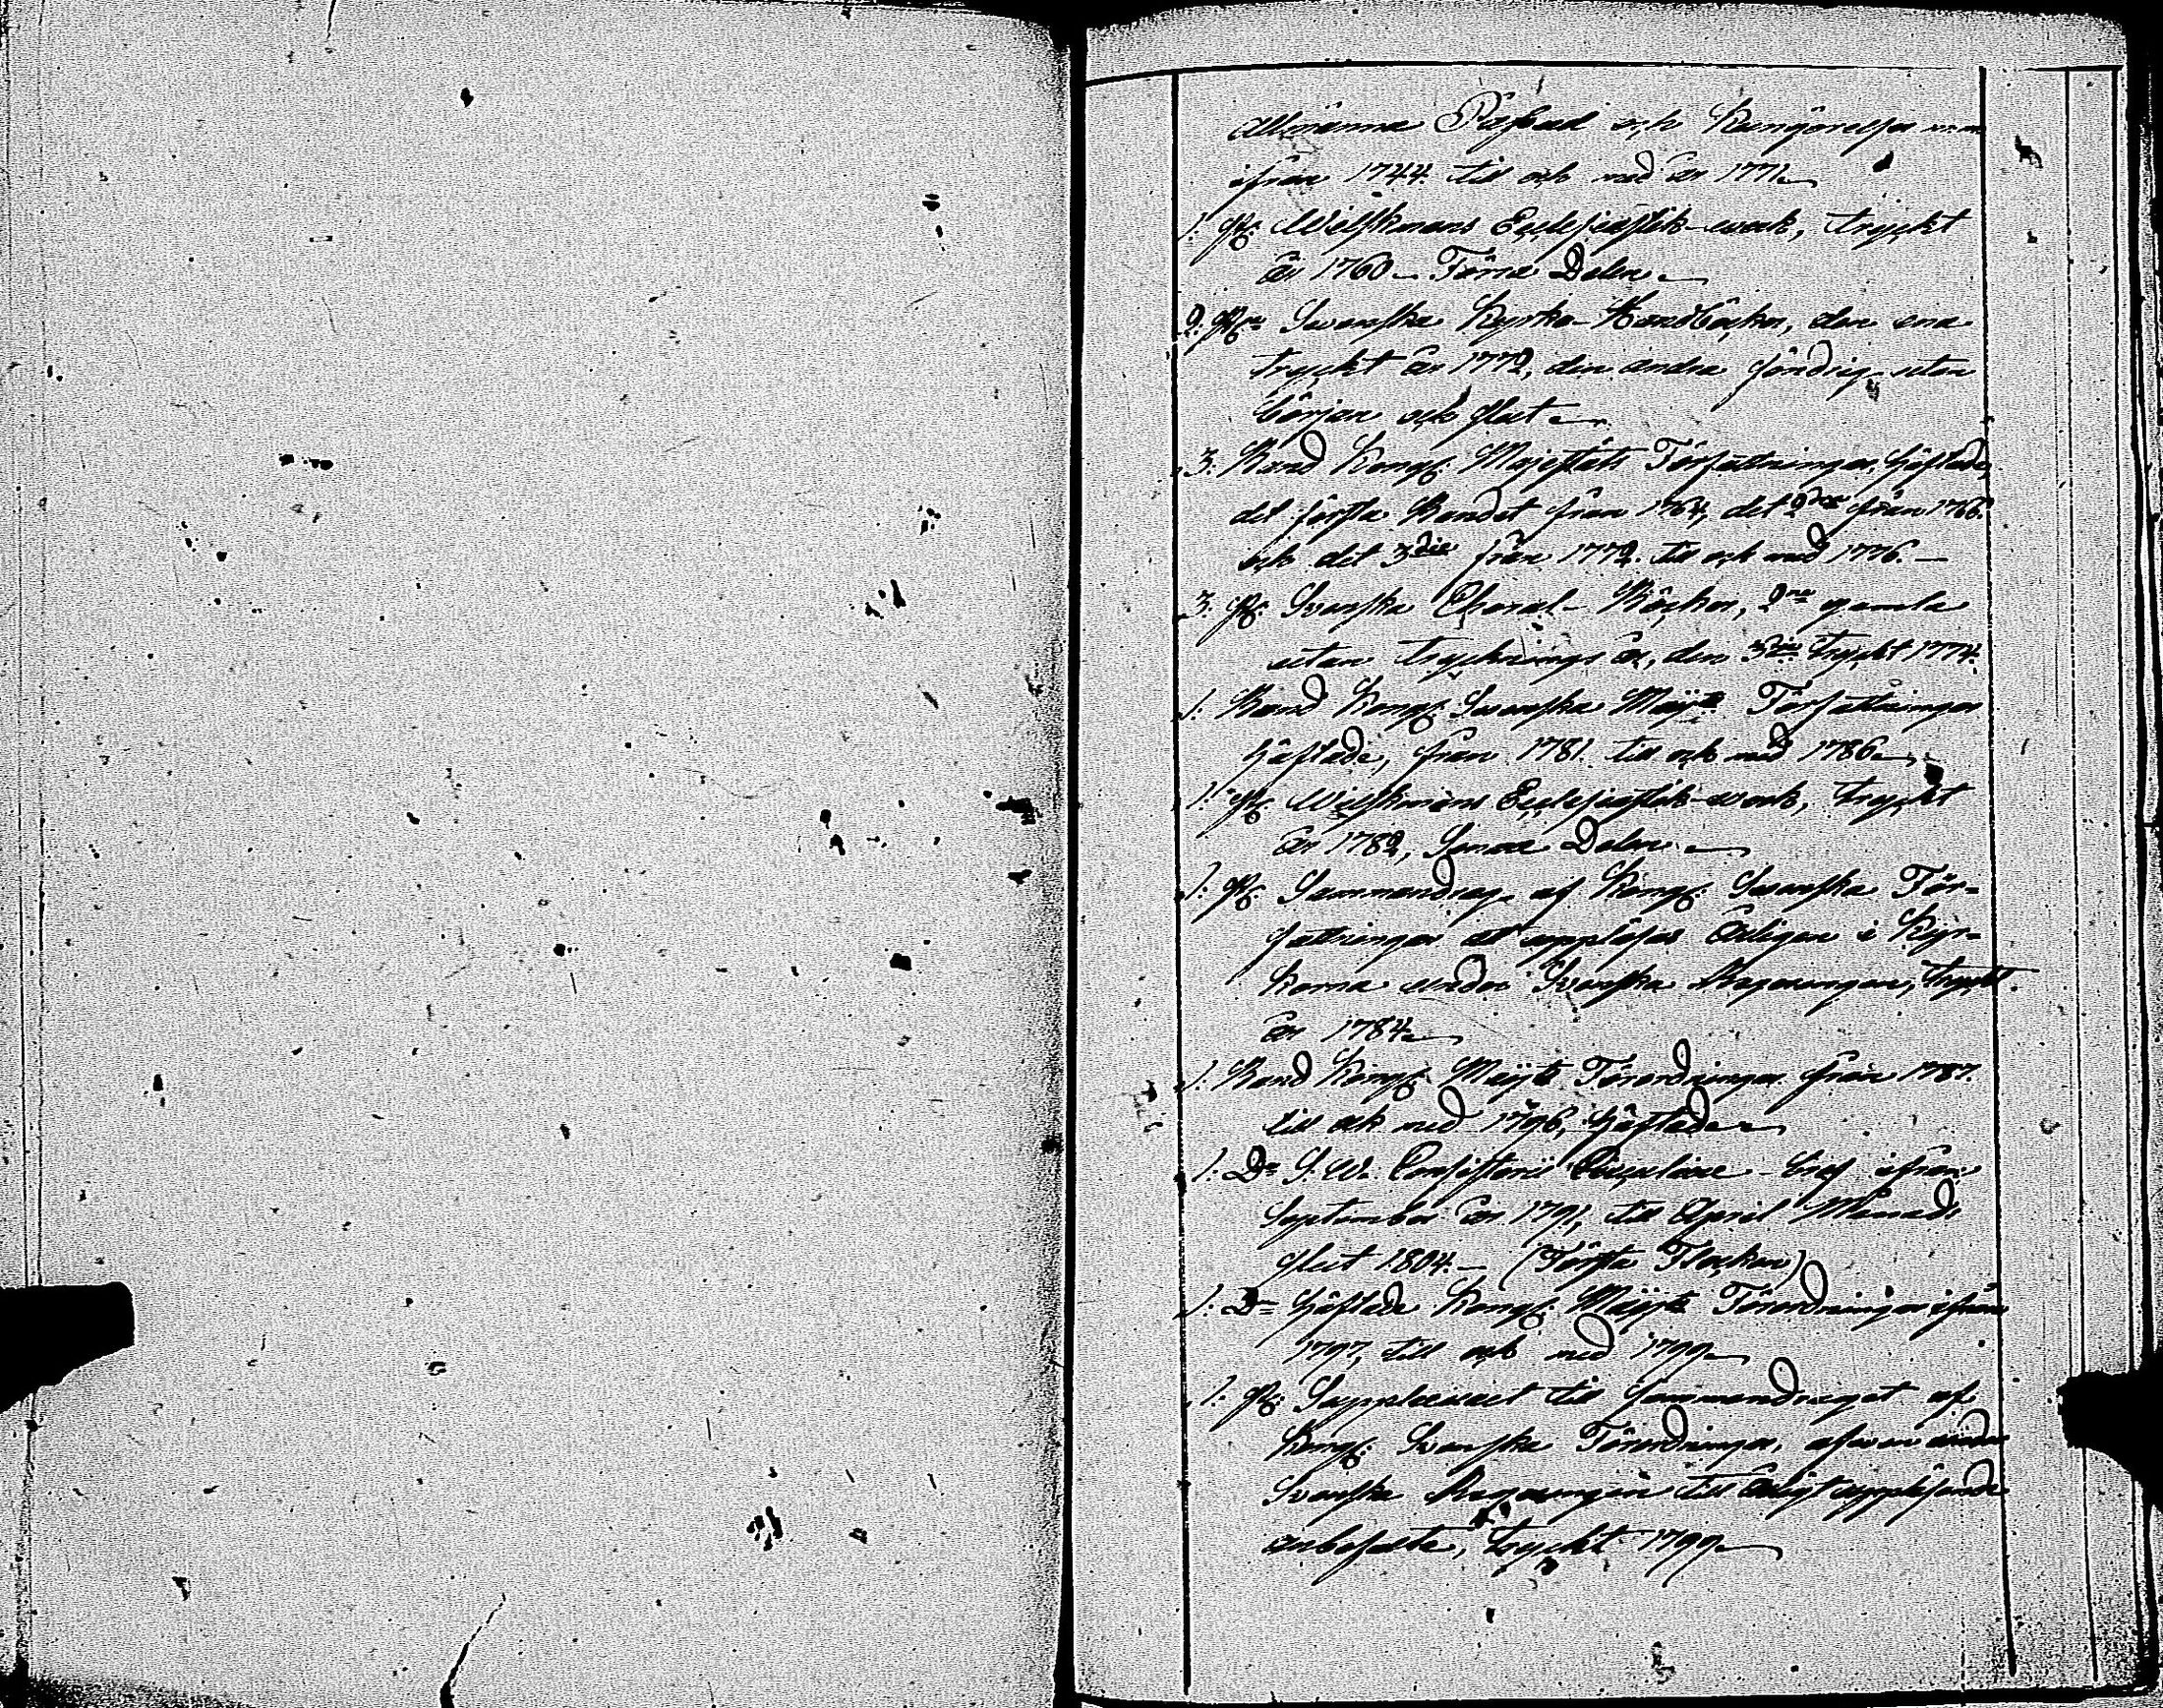 allmänna Påbud och Kungörelser m.m.
ifrån 1744. till och med år 1771.
1. St: Wilskmans Ecclesiastik-werk, tryckt
år 1760. Förra Delen.
2. St: Swenska Kyrko-Handböcker, den ena
tryckt år 1772, den andra söndrig utan
början och slut.
3. Band Kongl: Majestäts Författningar, häftade,
det första Bandet från 1764, det 2dra från 1766.
och det 3die från 1772. till och med 1776. —
3. St: Svenska Choral-Böcker, 2ne gamla
utan trycknings år, den 3die tryckt 1774.
1. Band Kongl: Swenska Maj:ts Författningar
häftade, från 1781. till och med 1786.
1. St: Wilskmans Ecclesiastik-werk, tryckt
år 1782, Senare Delen.
1. St: Sammandrag af Kongl: Swenska För-
fattningar at uppläsas Årligen i Kyr-
korna under Svenska Regeringen, tryckt
år 1784.
1. Band Kongl: Maj:ts Förordningar från 1787.
till och med 1796, häftade.
1. D:o Consistorii Circulaire-bref ifrån
September år 1791, till April Månads
slut 1804. — (Första Flocken)
1. D:o häftade Kongl: Maj:ts Förordningar ifrån
1797, till och med 1799.
1. St: Supplement till sammandraget af
Kongl: Svenska Förordningar, afwen under
Svenska Regeringen till årligt uppläsande
anbefalte, tryckt 1799.